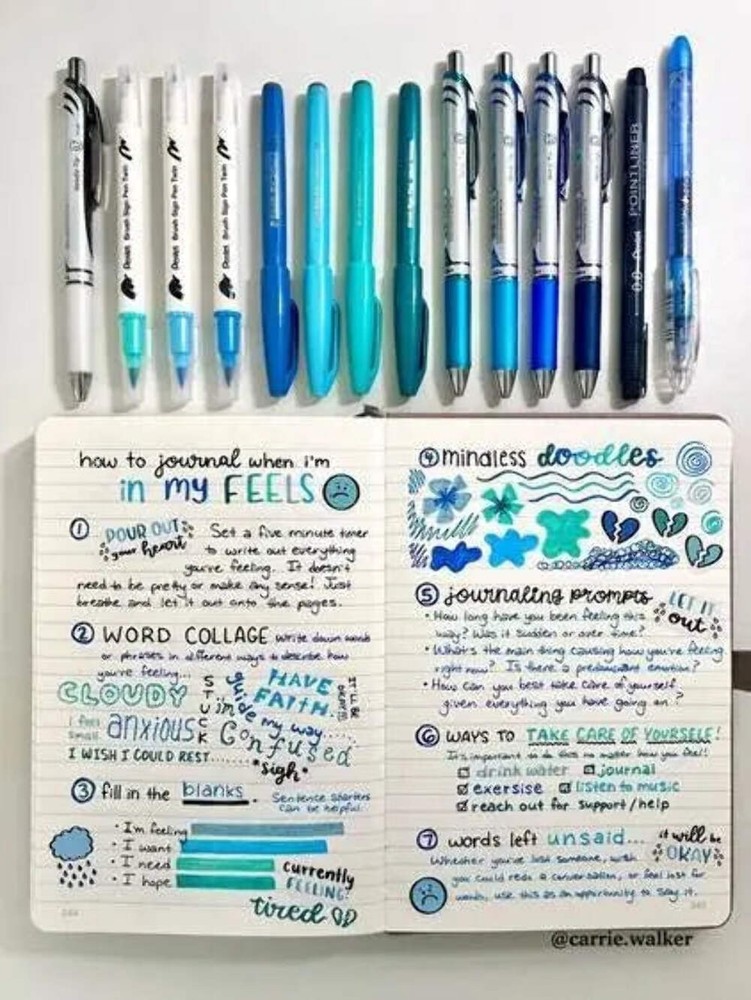 Pentel Brush Sign Pen Twin
Pentel Brush Sign Pen Twin
Pentel Brush Sign Pen Twin
0.8 Pentel POINTLINER
how to journal when i'm
in my FEELS
1 POUR OUT your heart
Set a five minute timer
to write out everything
you're feeling. It doesn't
need to be pretty or make any sense! Just
breathe and let it out onto the pages.
2 WORD COLLAGE write down words
or phrases in different ways to describe how
you're feeling...
CLOUDY
STUCK
guide my way....
HAVE FAITH.
IT'LL BE OKAY!!!
i feel small
anxious
i'm Confused
I WISH I COULD REST........
*sigh*
3 fill in the blanks.
Sentence starters
can be helpful.
• I'm feeling
• I want
• I need
• I hope
currently
FEELING:
tired
4 mindless doodles
5 journaling prompts
LET IT out
• How long have you been feeling this
way? Was it sudden or over time?
• What's the main thing causing how you're feeling
right now? Is there a predominant emotion?
• How can you best take care of yourself
given everything you have going on?
6 WAYS TO TAKE CARE OF YOURSELF!
It's important to do this no matter how you feel!
drink water journal
exersise listen to music
reach out for support/help
7 words left unsaid...
it will be OKAY
Whether you've lost someone, wish
you could redo a conversation, or feel lost for
words, use this as an opportunity to say it.
@carrie.walker